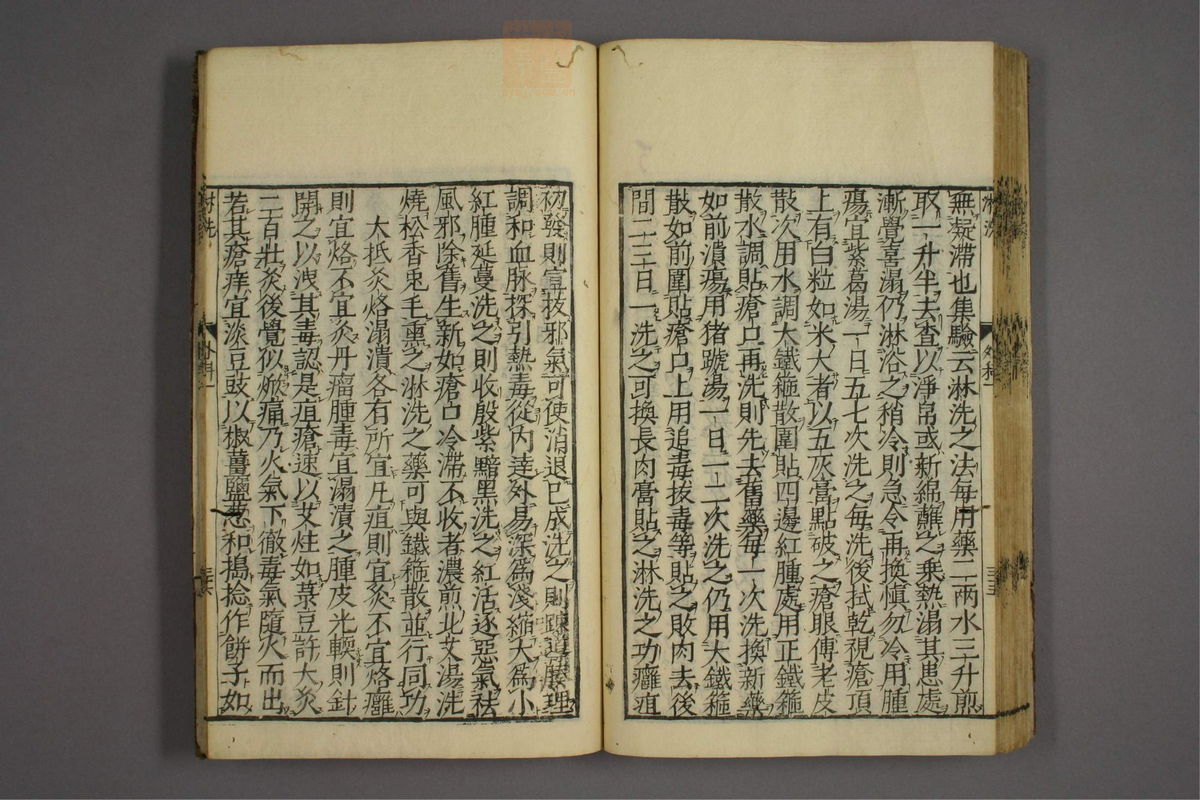 無凝滯也集驗云淋洗之法每用藥二兩水三升煎
取一升半去查以淨帛或新綿蘸之乗熱溻其患處
漸覺喜溻仍淋浴之稍冷則急令再換慎勿冷用腫
瘍宜紫葛湯一日五七次洗之每洗後拭乾視瘡頂
上有白粒如米大者以五灰膏點破之瘡眼傳老皮
散次用水調大鐵箍散圍貼四邊紅腫處用正鐵箍
散水調貼瘡口再洗則先去舊藥每一次洗換新藥
如前潰瘍用猪蹄湯一日一二次洗之仍用大鐵箍
散如前圍貼瘡口上用追毒拔毒等貼之敗肉去後
間二三日一洗之可換長肉膏貼之淋洗之功癰疽
初發則宣拔邪氣可使消退已成洗之則疎導腠理
調和血脉探引熱毒從内達外易深爲淺縮大爲小
紅腫延蔓洗之則收殷紫黯黑洗之紅活逐惡氣祛
風邪除舊生新如瘡口冷滯不收者濃煎北艾湯洗
燒松香兎毛熏之淋洗之藥可與鐵箍散並行同功
大抵灸烙溻漬各有所宜凡疽則宜灸不宜烙癰
則宜烙不宜灸丹瘤腫毒宜溻漬之腫皮光軟則針
開之以洩其毒認是疽瘡速以艾炷如菉豆許大灸
二百壯灸後覺似焮痛乃火氣下徹毒氣隨火而出
若其瘡痒宜淡豆豉以椒薑鹽葱和搗捻作餅子如
外科一
三十六